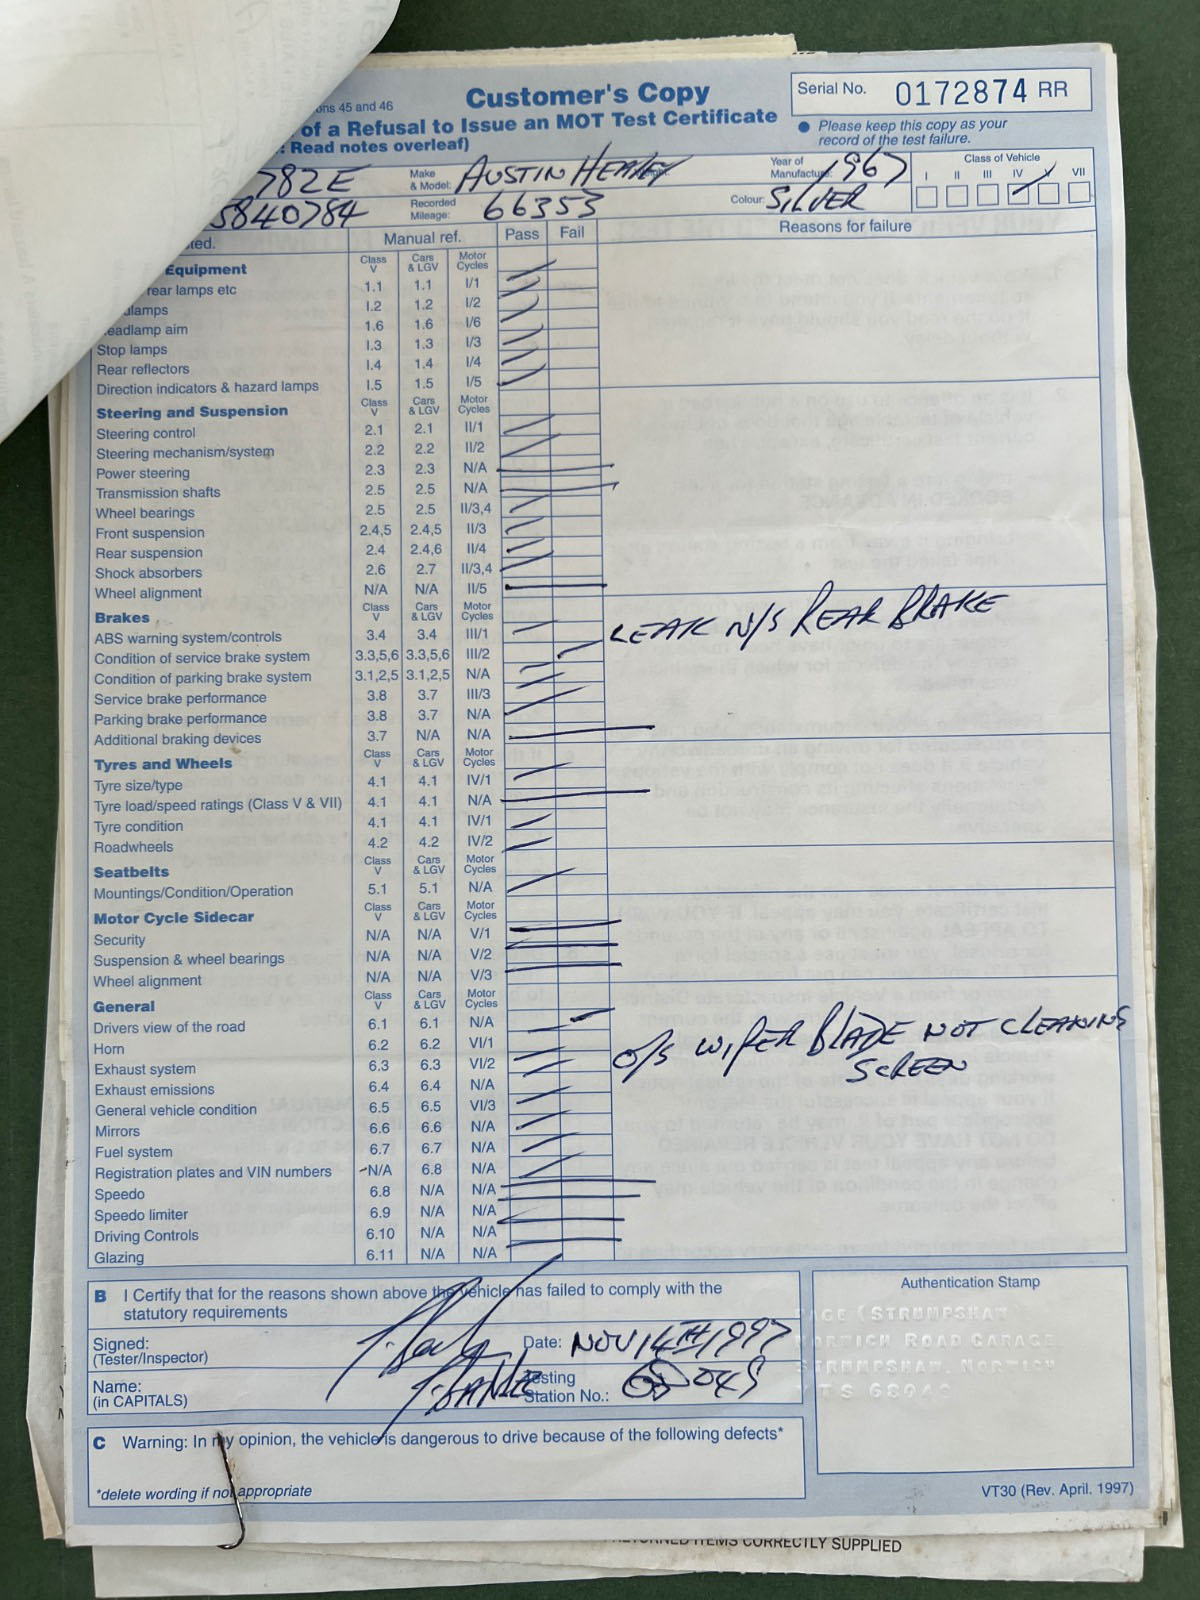 ons 45 and 46
Customer's Copy
Serial No. 0172874 RR
of a Refusal to Issue an MOT Test Certificate
: Read notes overleaf)
● Please keep this copy as your
record of the test failure.
782E Make & Model: AUSTIN HEALEY Year of Manufacture: 1967 Class of Vehicle I II III IV V VII
5840784 Recorded Mileage: 66353 Colour: SILVER
ted. Manual ref. Pass Fail Reasons for failure
Equipment Class V Cars & LGV Motor Cycles
rear lamps etc 1.1 1.1 I/1
dlamps 1.2 1.2 I/2
eadlamp aim 1.6 1.6 I/6
Stop lamps 1.3 1.3 I/3
Rear reflectors 1.4 1.4 I/4
Direction indicators & hazard lamps 1.5 1.5 I/5
Steering and Suspension Class V Cars & LGV Motor Cycles
Steering control 2.1 2.1 II/1
Steering mechanism/system 2.2 2.2 II/2
Power steering 2.3 2.3 N/A
Transmission shafts 2.5 2.5 N/A
Wheel bearings 2.5 2.5 II/3,4
Front suspension 2.4,5 2.4,5 II/3
Rear suspension 2.4 2.4,6 II/4
Shock absorbers 2.6 2.7 II/3,4
Wheel alignment N/A N/A II/5
Brakes Class V Cars & LGV Motor Cycles
ABS warning system/controls 3.4 3.4 III/1 LEAK N/S REAR BRAKE
Condition of service brake system 3.3,5,6 3.3,5,6 III/2
Condition of parking brake system 3.1,2,5 3.1,2,5 N/A
Service brake performance 3.8 3.7 III/3
Parking brake performance 3.8 3.7 N/A
Additional braking devices 3.7 N/A N/A
Tyres and Wheels Class V Cars & LGV Motor Cycles
Tyre size/type 4.1 4.1 IV/1
Tyre load/speed ratings (Class V & VII) 4.1 4.1 N/A
Tyre condition 4.1 4.1 IV/1
Roadwheels 4.2 4.2 IV/2
Seatbelts Class V Cars & LGV Motor Cycles
Mountings/Condition/Operation 5.1 5.1 N/A
Motor Cycle Sidecar Class V Cars & LGV Motor Cycles
Security N/A N/A V/1
Suspension & wheel bearings N/A N/A V/2
Wheel alignment N/A N/A V/3
General Class V Cars & LGV Motor Cycles
Drivers view of the road 6.1 6.1 N/A
Horn 6.2 6.2 VI/1 O/S WIPER BLADE NOT CLEANING
Exhaust system 6.3 6.3 VI/2 SCREEN
Exhaust emissions 6.4 6.4 N/A
General vehicle condition 6.5 6.5 VI/3
Mirrors 6.6 6.6 N/A
Fuel system 6.7 6.7 N/A
Registration plates and VIN numbers N/A 6.8 N/A
Speedo 6.8 N/A N/A
Speedo limiter 6.9 N/A N/A
Driving Controls 6.10 N/A N/A
Glazing 6.11 N/A N/A
B I Certify that for the reasons shown above the vehicle has failed to comply with the
statutory requirements
Signed:
(Tester/Inspector)
Date: NOV 14TH 1997
Name:
(in CAPITALS)
Testing
Station No.: 049
Authentication Stamp
PAGE (STRUMPSHAW
NORWICH ROAD GARAGE
STRUMPSHAW, NORWICH
VTS 68049
C Warning: In my opinion, the vehicle is dangerous to drive because of the following defects*
*delete wording if not appropriate
VT30 (Rev. April. 1997)
ITEMS CORRECTLY SUPPLIED